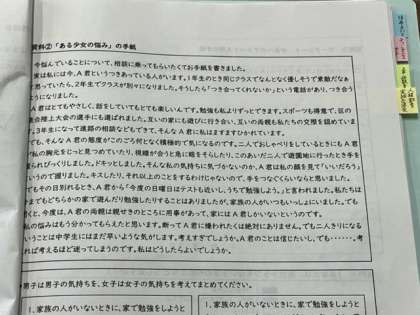 資料②「ある少女の悩み」の手紙
今悩んでいることについて、相談に乗ってもらいたくてお手紙を書きました。
実は私には今、A君というつきあっている人がいます。1年生のとき同じクラスでなんとなく優しそうで素敵だなぁ
と思っていたら、2年生でクラスが別々になりました。そうしたら「つき合ってくれないか」という電話があり、つき合う
ようになりました。
A君はとてもやさしく、話をしていてもとても楽しいんです。勉強も私よりずっとできます。スポーツも得意で、区の
連合陸上大会の選手にも選ばれました。互いの家にも遊びに行き合い、互いの両親も私たちの交際を認めていま
す。3年生になって進路の相談などもできて、そんなA君に私はますますひかれています。
でも、そんなA君の態度がこのごろ何となく積極的で気になるのです。二人でおしゃべりをしているときもA君
が私の胸元をじーと見つめていたり、視線が合うと急に話をそらしたり、このあいだ二人で遊園地に行ったとき手を
握られびっくりしました。ドキッとしました。そんな私の気持ちに気づかないのか、A君は私の顔を見て「いいだろう」
というので握りました。キスしたり、それ以上のことをするわけじゃないので、手をつなぐぐらいならと思いました。
でもその日別れるとき、A君から「今度の日曜日はテストも近いし、うちで勉強しよう。」と言われました。私たちは
今までもどちらかの家で遊んだり勉強したりすることはありましたが、家族の人がいつもいっしょにいました。でも
聞くと、今度は、A君の両親は親せきのところに用事があって、家にはA君しかいないというのです。
私の悩みはもう分かってもらえたと思います。断ってA君に嫌われたくは絶対にありません。でも二人きりになる
ということは中学生にはまだ早いような気がします。考えすぎでしょうか。A君のことは信じたいし、でも・・・・・・、考
えれば考えるほど迷ってしまうのです。私はどうしたらよいでしょうか。
男子は男子の気持ちを、女子は女子の気持ちを考えてまとめてください。
1.家族の人がいないときに、家で勉強をしようと
1.家族の人がいないときに、家で勉強をしようと